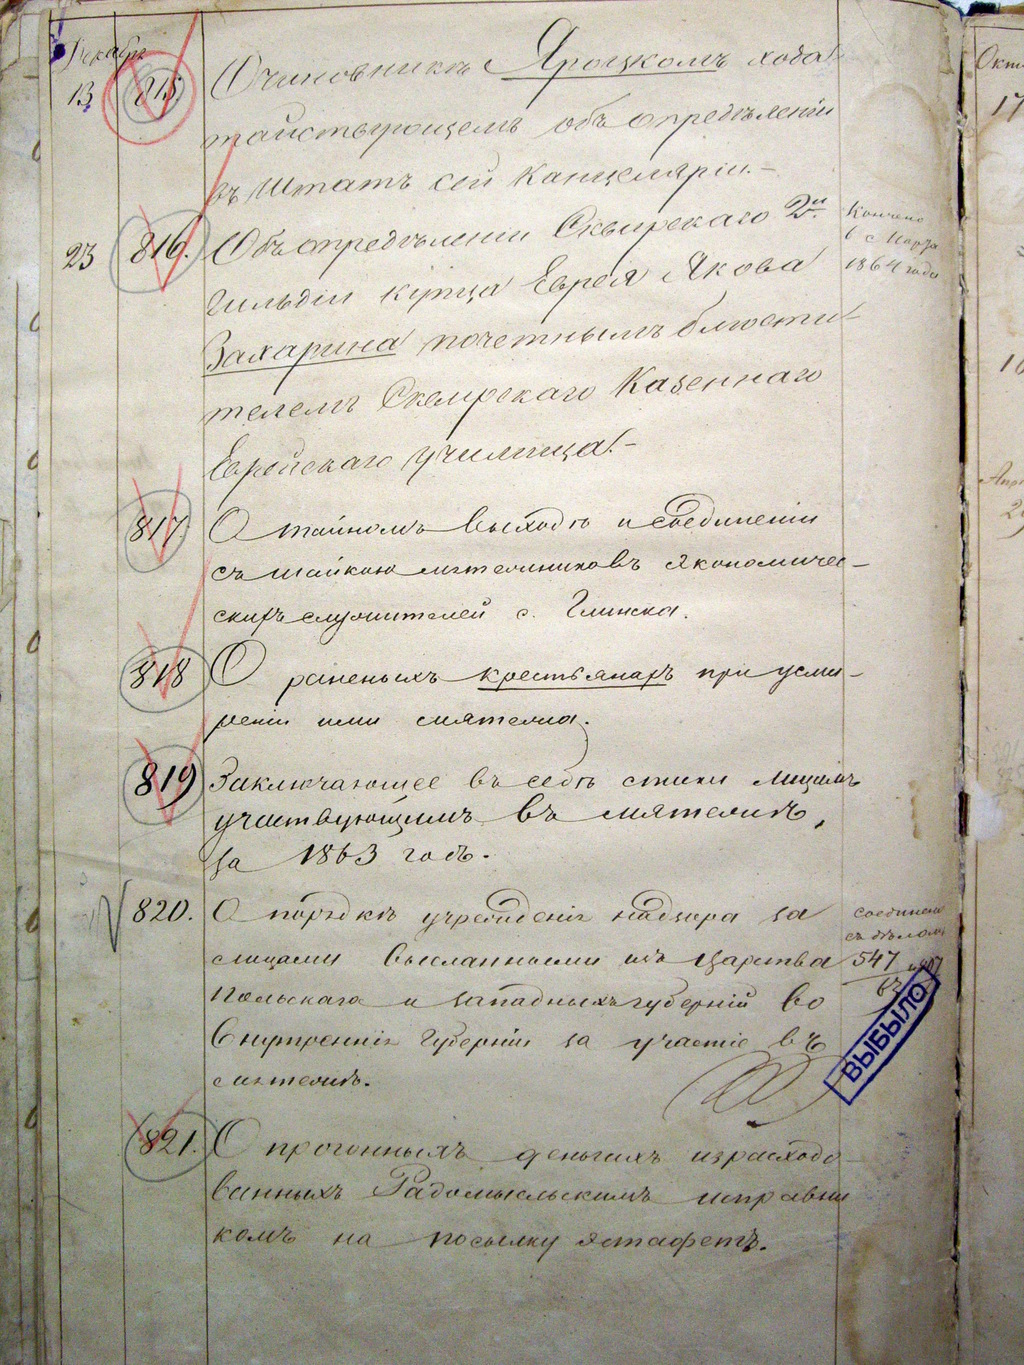 Декабрь
13
815
О чиновникѣ Яроцкомъ хода-
тайствующемъ объ опредѣленіи
въ Штатъ сей Канцеляріи.-
23
816.
Объ опредѣленіи Сквирскаго 2й
гильдіи купца Еврея Якова
Захарина почетнымъ блюсти-
телемъ Сквирскаго Казеннаго
Еврейскаго училища.-
Кончено
6 с Марта
1864 года
817
О тайномъ выходѣ и соединеніи
съ шайкою мятежниковъ экономичес-
скихъ служителей с. Глинска.
818
О раненыхъ крестьянахъ при усми-
реніи ими мятежа.
819
Заключающее въ себѣ стихи лицамъ
участвующимъ въ мятежѣ,
за 1863 годъ.
820.
О порядкѣ учрежденія надзора за
лицами высланными изъ Царства
Польскаго и западныхъ губерній во
внутреннія губерніи за участіе въ
мятежѣ.
соединено
съ дѣломъ
547
63
ВЫБЫЛО
821.
О прогонныхъ деньгахъ израсходо-
ванныхъ Радомысльскимъ исправни
комъ на посылку эстафетъ.
Окт
17
10
Апр